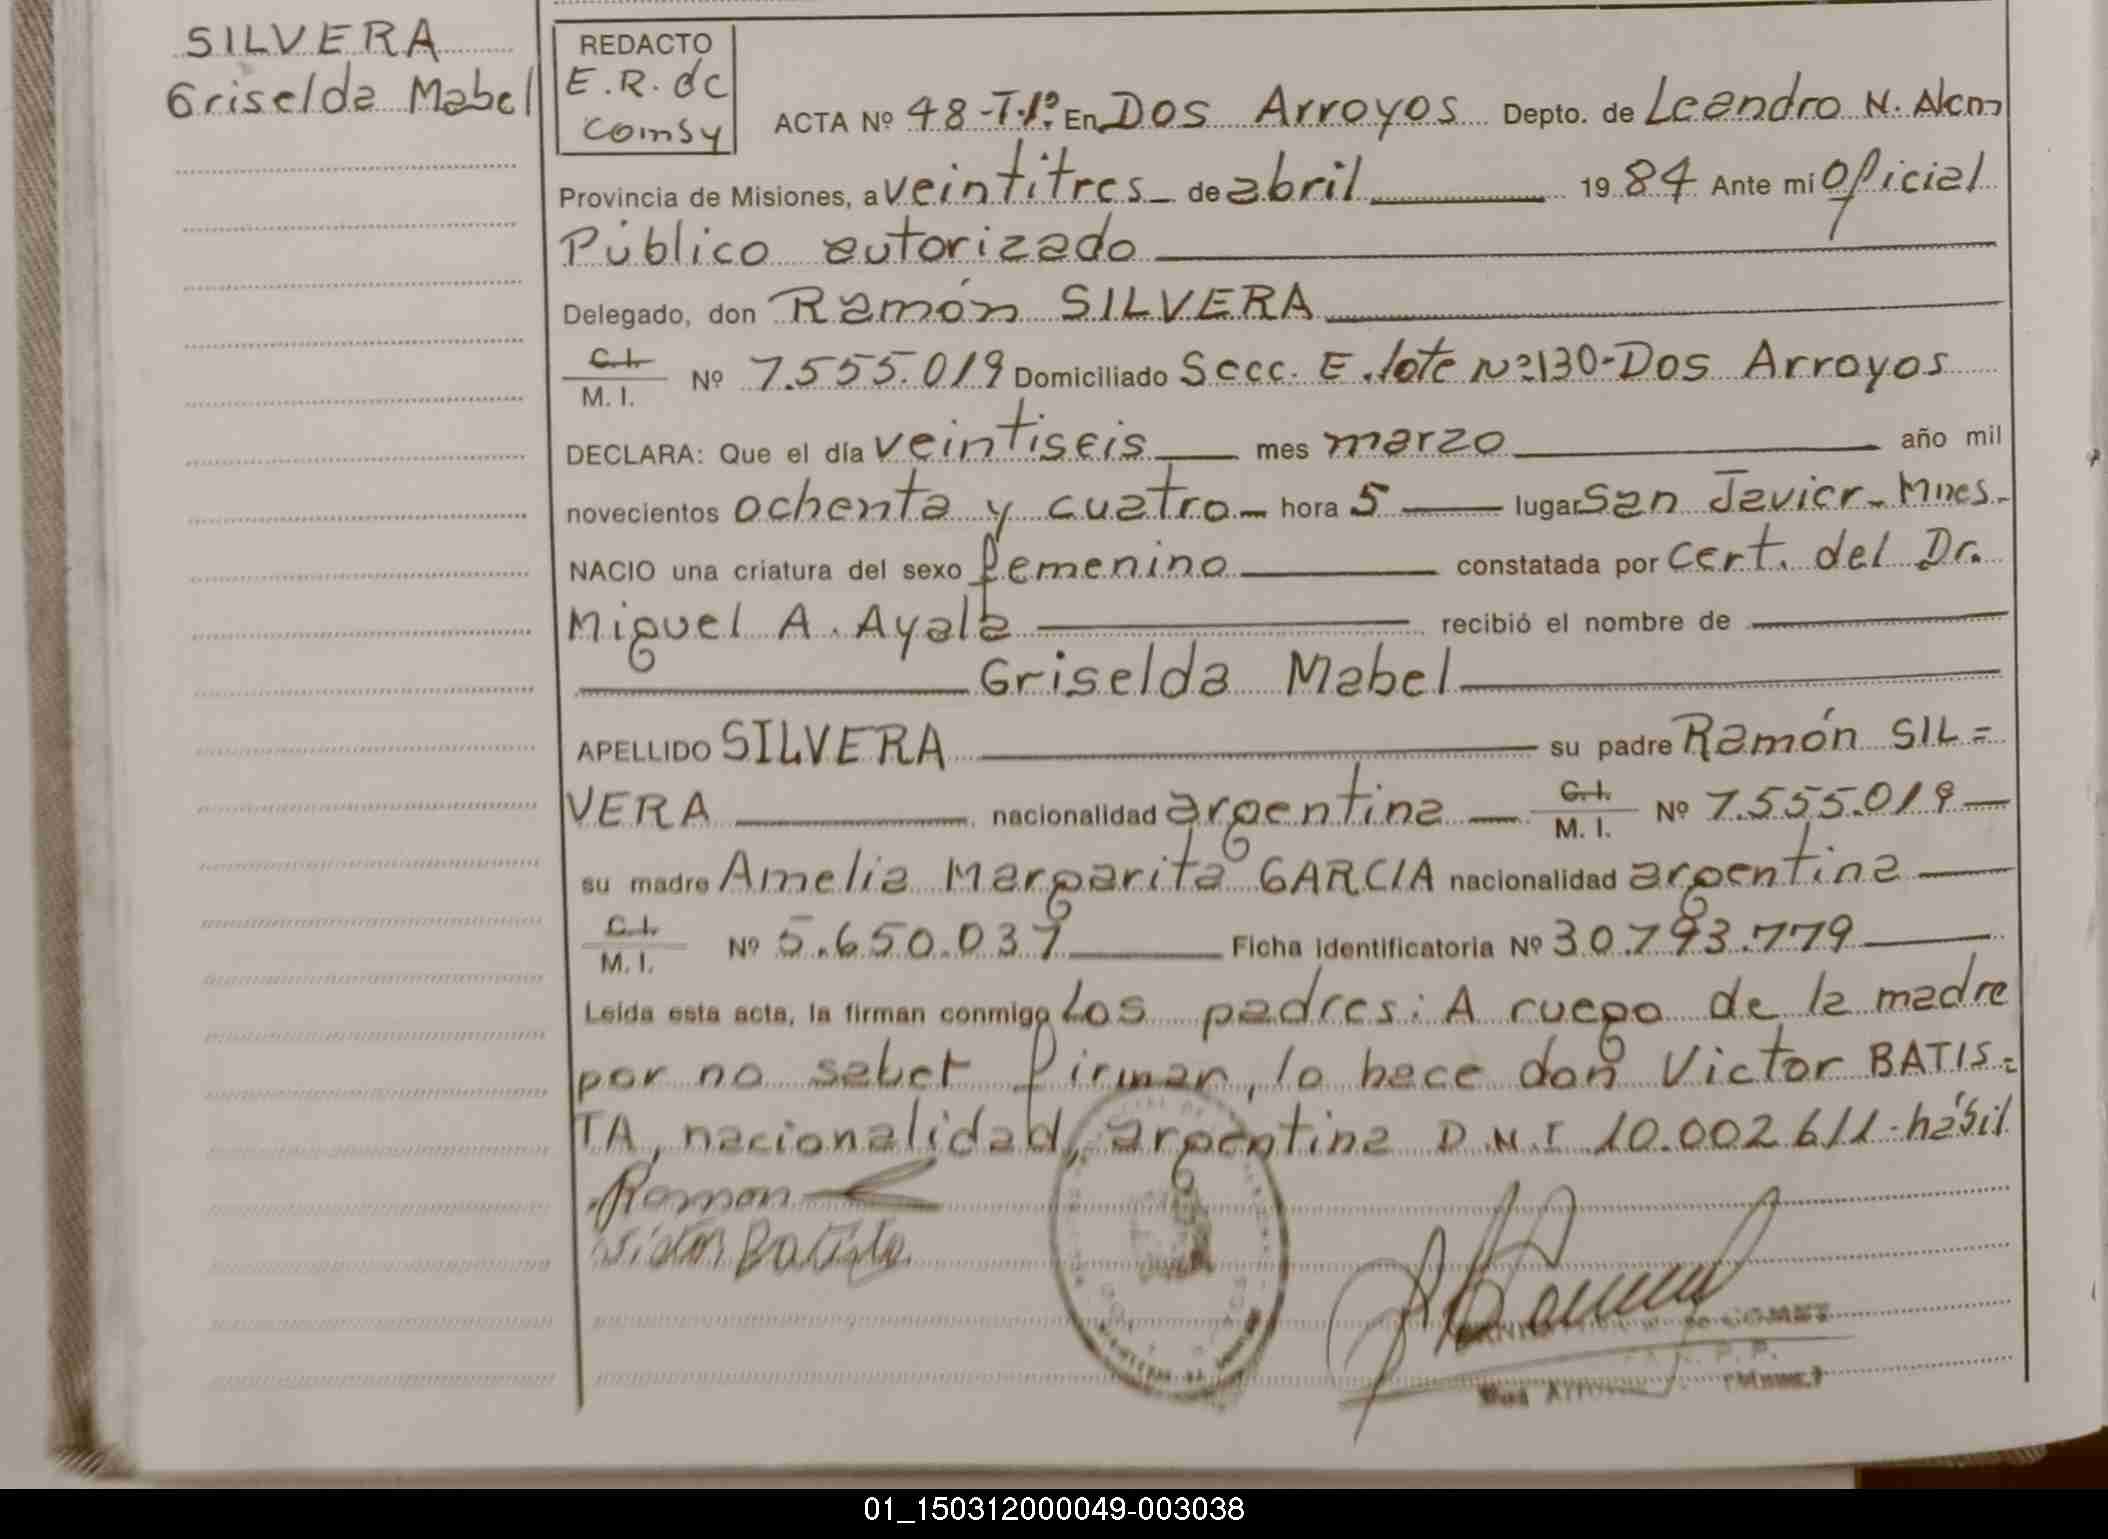 SILVERA
Griselda Mabel
REDACTO
E.R. de
Comsy
ACTA Nº 48-T.1º. En Dos Arroyos Depto. de Leandro N. Alem
Provincia de Misiones, a veintitres de abril 1984 Ante mí Oficial
Público autorizado
Delegado, don Ramón SILVERA
C.I. / M. I. Nº 7.555.019 Domiciliado Secc. E. lote Nº 130-Dos Arroyos
DECLARA: Que el día veintiseis mes marzo año mil
novecientos ochenta y cuatro hora 5 lugar San Javier-Mnes.
NACIO una criatura del sexo femenino constatada por Cert. del Dr.
Miguel A. Ayala recibió el nombre de
Griselda Mabel
APELLIDO SILVERA su padre Ramón SIL=
VERA nacionalidad argentina C.I. / M. I. Nº 7.555.019
su madre Amelia Margarita GARCIA nacionalidad argentina
C.I. / M. I. Nº 5.650.037 Ficha identificatoria Nº 30.793.779
Leída esta acta, la firman conmigo Los padres: A ruego de la madre
por no saber firmar, lo hace don Victor BATIS=
TA, nacionalidad, argentina D.N.I 10.002.611-hábil
Ramon
Victor Batista
01_150312000049-003038